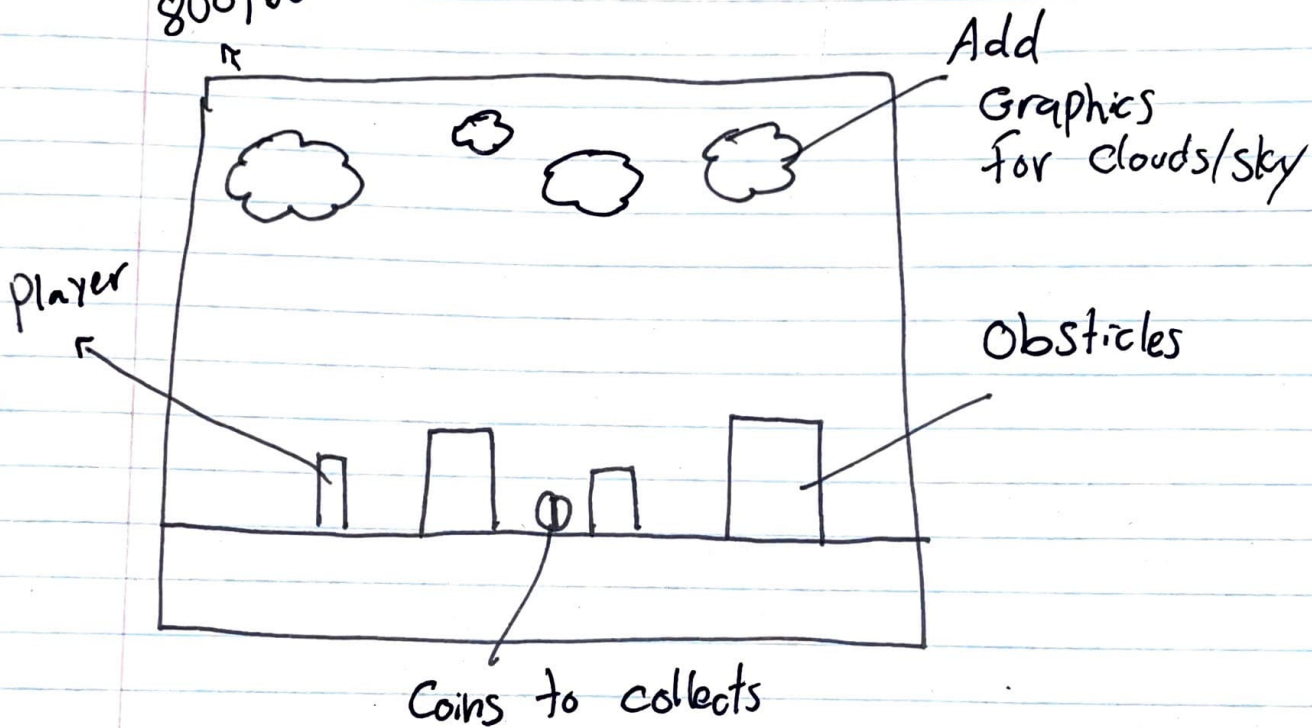 Add
Graphics
for clouds/sky
Player
Obsticles
Coins to collects